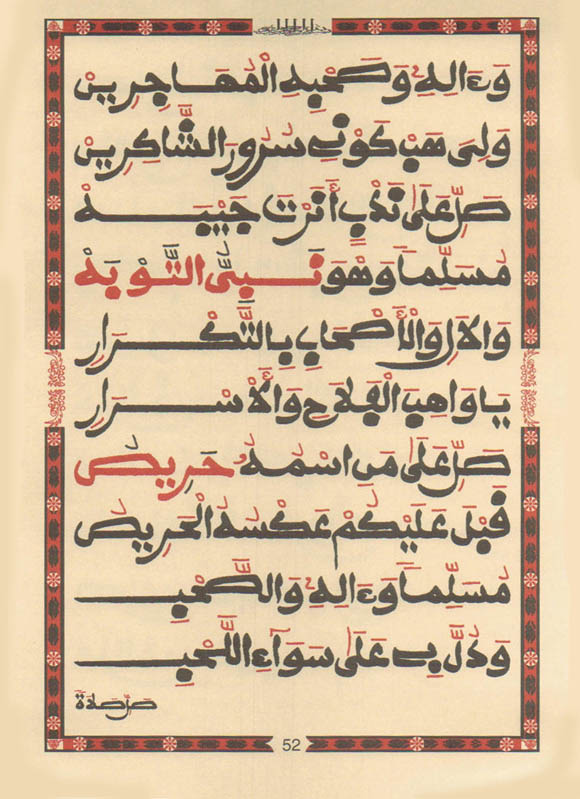 وَءَالِهِ وَصَحْبِهِ الْمُهَاجِرِينْ
وَلِيَ هَبْ كَوْنِي سُرُورَ الشَّاكِرِينْ
صَلِّ عَلَى نَدْبٍ أَنَرْتَ جَيْبَهْ
مُسَلِّماً وَهْوَ نَبِيُّ التَّوْبَهْ
وَالَالِ وَالْأَصْحَابِ بِالتَّكْرَارِ
يَا وَاهِبَ الْفَلَاحِ وَالْأَسْرَارِ
صَلِّ عَلَى مَنِ اسْمُهُ حَرِيصُ
قَبْلَ عَلَيْكُمْ عَكْسُهُ الْحَرِيصُ
مُسَلِّماً وَءَالِهِ وَالصَّحْبِ
وَدُلَّ بِي عَلَى سَوَآءِ اللَّحْبِ
صَلِّ صَلَاةً
52